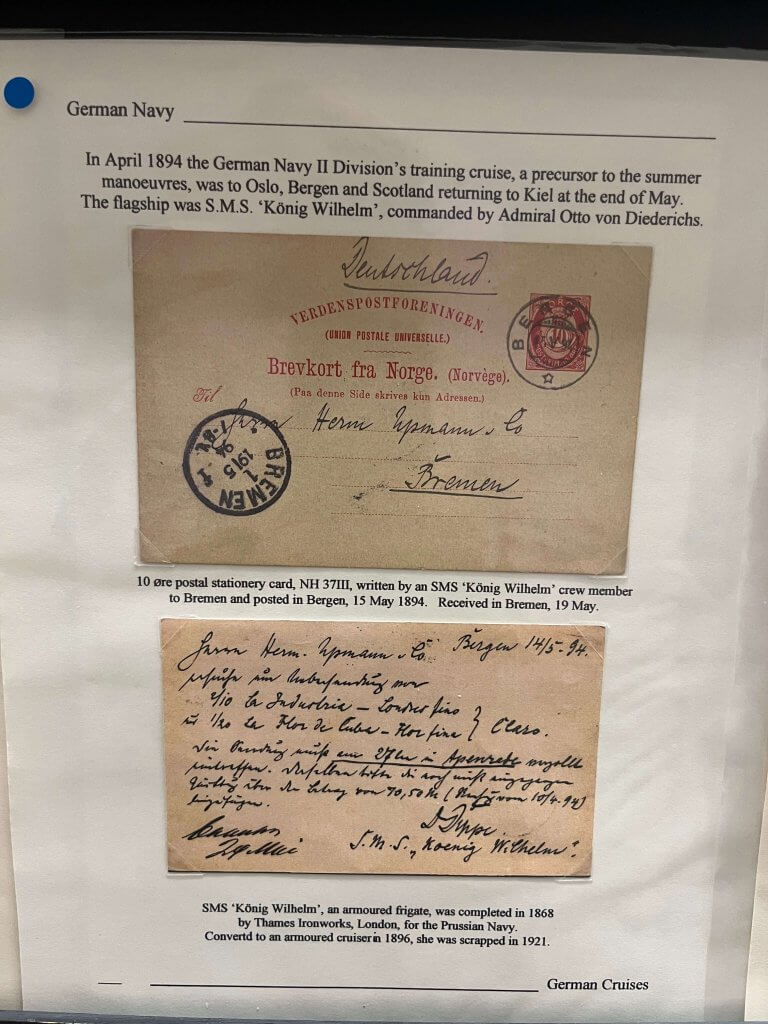 German Navy
In April 1894 the German Navy II Division's training cruise, a precursor to the summer
manoeuvres, was to Oslo, Bergen and Scotland returning to Kiel at the end of May.
The flagship was S.M.S. 'König Wilhelm', commanded by Admiral Otto von Diederichs.
Deutschland.
VERDENSPOSTFORENINGEN.
NORGE
BERGEN
(UNION POSTALE UNIVERSELLE.)
Brevkort fra Norge. (Norvège).
(Paa denne Side skrives kun Adressen.)
Til
Herrn Herm Upmann & Co
Bremen
BREMEN 1
19 5
94
10 øre postal stationery card, NH 37III, written by an SMS 'König Wilhelm' crew member
to Bremen and posted in Bergen, 15 May 1894. Received in Bremen, 19 May.
Bergen 14/5-94.
Herrn Herm. Upmann & Co.
2/10 La Industria – Londres fino
1/20 La Flor de Cuba – Flor fina } Claro.
Die Sendung muß am 27ten in Apenrade
eintreffen.
von 70,50 M ( vom 10/4.94)
S.M.S. „Koenig Wilhelm".
SMS 'König Wilhelm', an armoured frigate, was completed in 1868
by Thames Ironworks, London, for the Prussian Navy.
Convertd to an armoured cruiser in 1896, she was scrapped in 1921.
German Cruises